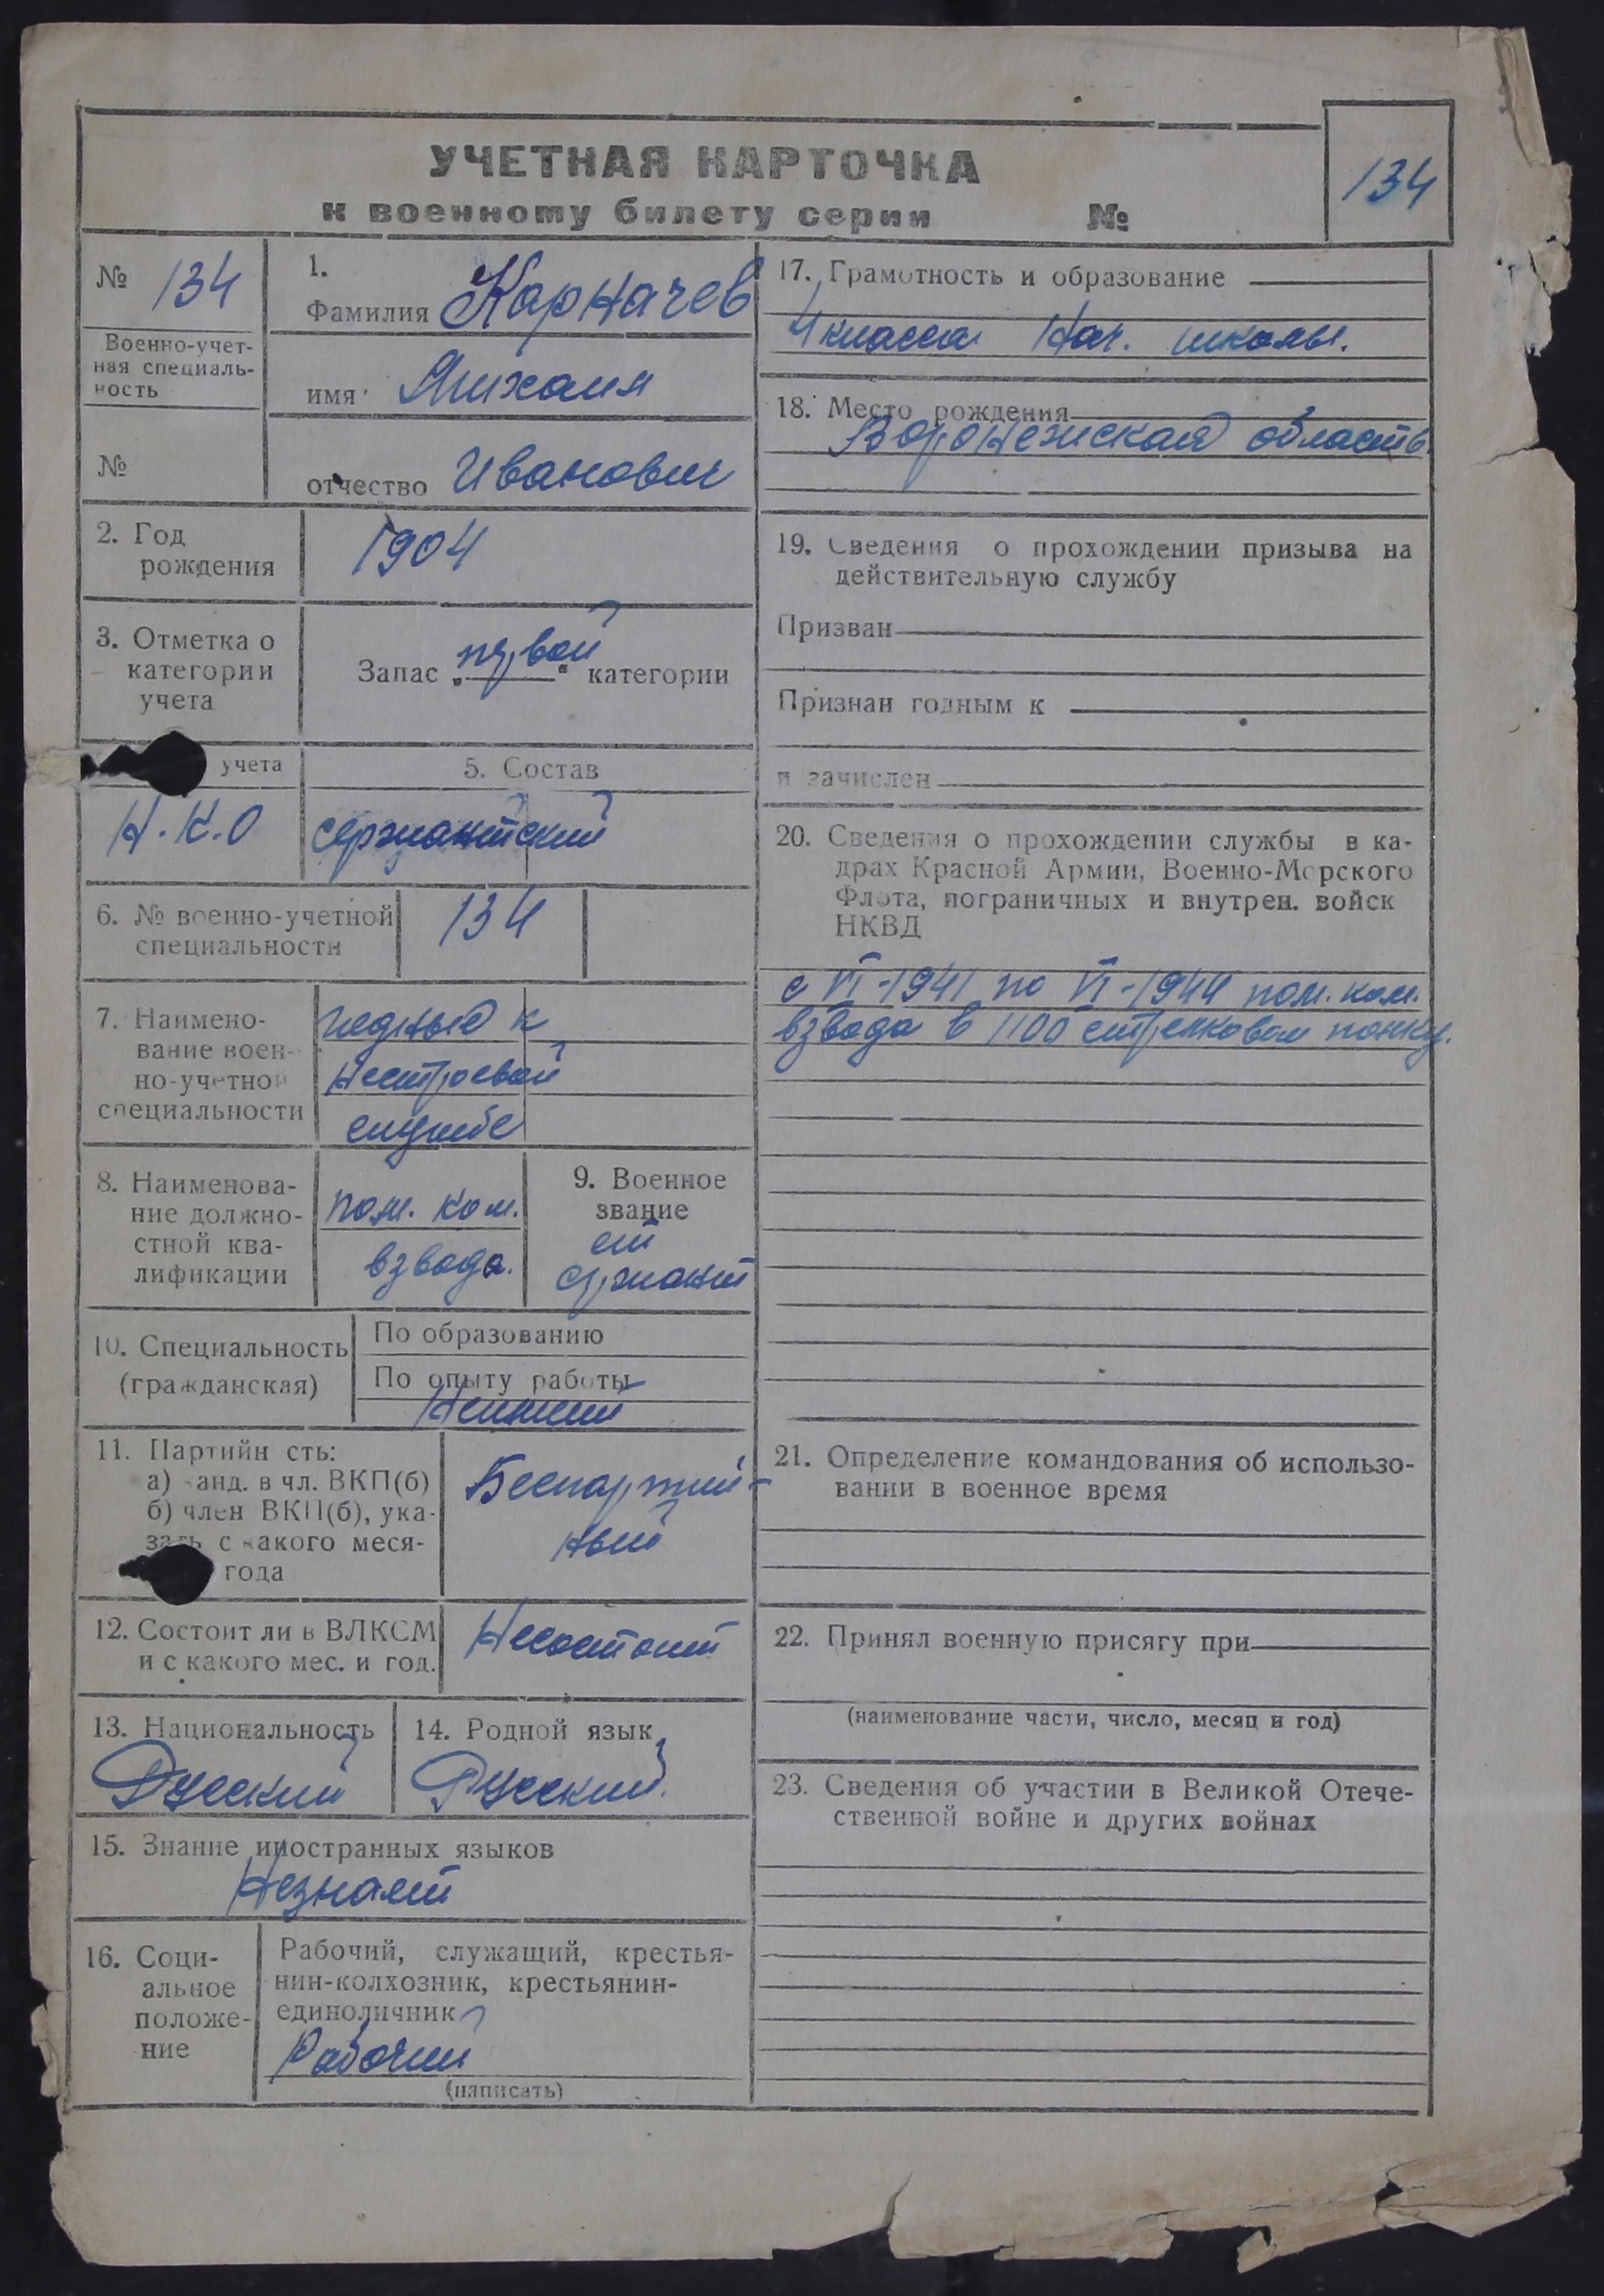 УЧЕТНАЯ КАРТОЧКА
к военному билету серии №
134
№ 134
Военно-учет-
ная специаль-
ность
№
1.
Фамилия Карначев
имя Михаил
отчество Иванович
2. Год
рождения
1904
3. Отметка о
категории
учета
Запас „первой“ категории
учета
Н.К.О
5. Состав
сержантский
6. № военно-учетной
специальности
134
7. Наимено-
вание воен-
но-учетной
специальности
годный к
нестроевой
службе
8. Наименова-
ние должно-
стной ква-
лификации
пом. ком.
взвода.
9. Военное
звание
ст
сержант
10. Специальность
(гражданская)
По образованию
По опыту работы
11. Партийн сть:
а) канд. в чл. ВКП(б)
б) член ВКП(б), ука-
зать с какого меся-
года
Беспартий-
ный
12. Состоит ли в ВЛКСМ
и с какого мес. и год.
Несостоит
13. Национальность
Русский
14. Родной язык
Русский
15. Знание иностранных языков
Незнает
16. Соци-
альное
положе-
ние
Рабочий, служащий, крестья-
нин-колхозник, крестьянин-
единоличник
Рабочий
(написать)
17. Грамотность и образование
4 класса Нач. школы.
18. Место рождения
Воронежская область.
19. Сведения о прохождении призыва на
действительную службу
Призван
Признан годным к
и зачислен
20. Сведения о прохождении службы в ка-
драх Красной Армии, Военно-Морского
Флота, пограничных и внутрен. войск
НКВД
с VI-1941 по VI-1944 пом. ком.
взвода в 1100 стрелковом полку.
21. Определение командования об использо-
вании в военное время
22. Принял военную присягу при
(наименование части, число, месяц и год)
23. Сведения об участии в Великой Отече-
ственной войне и других войнах